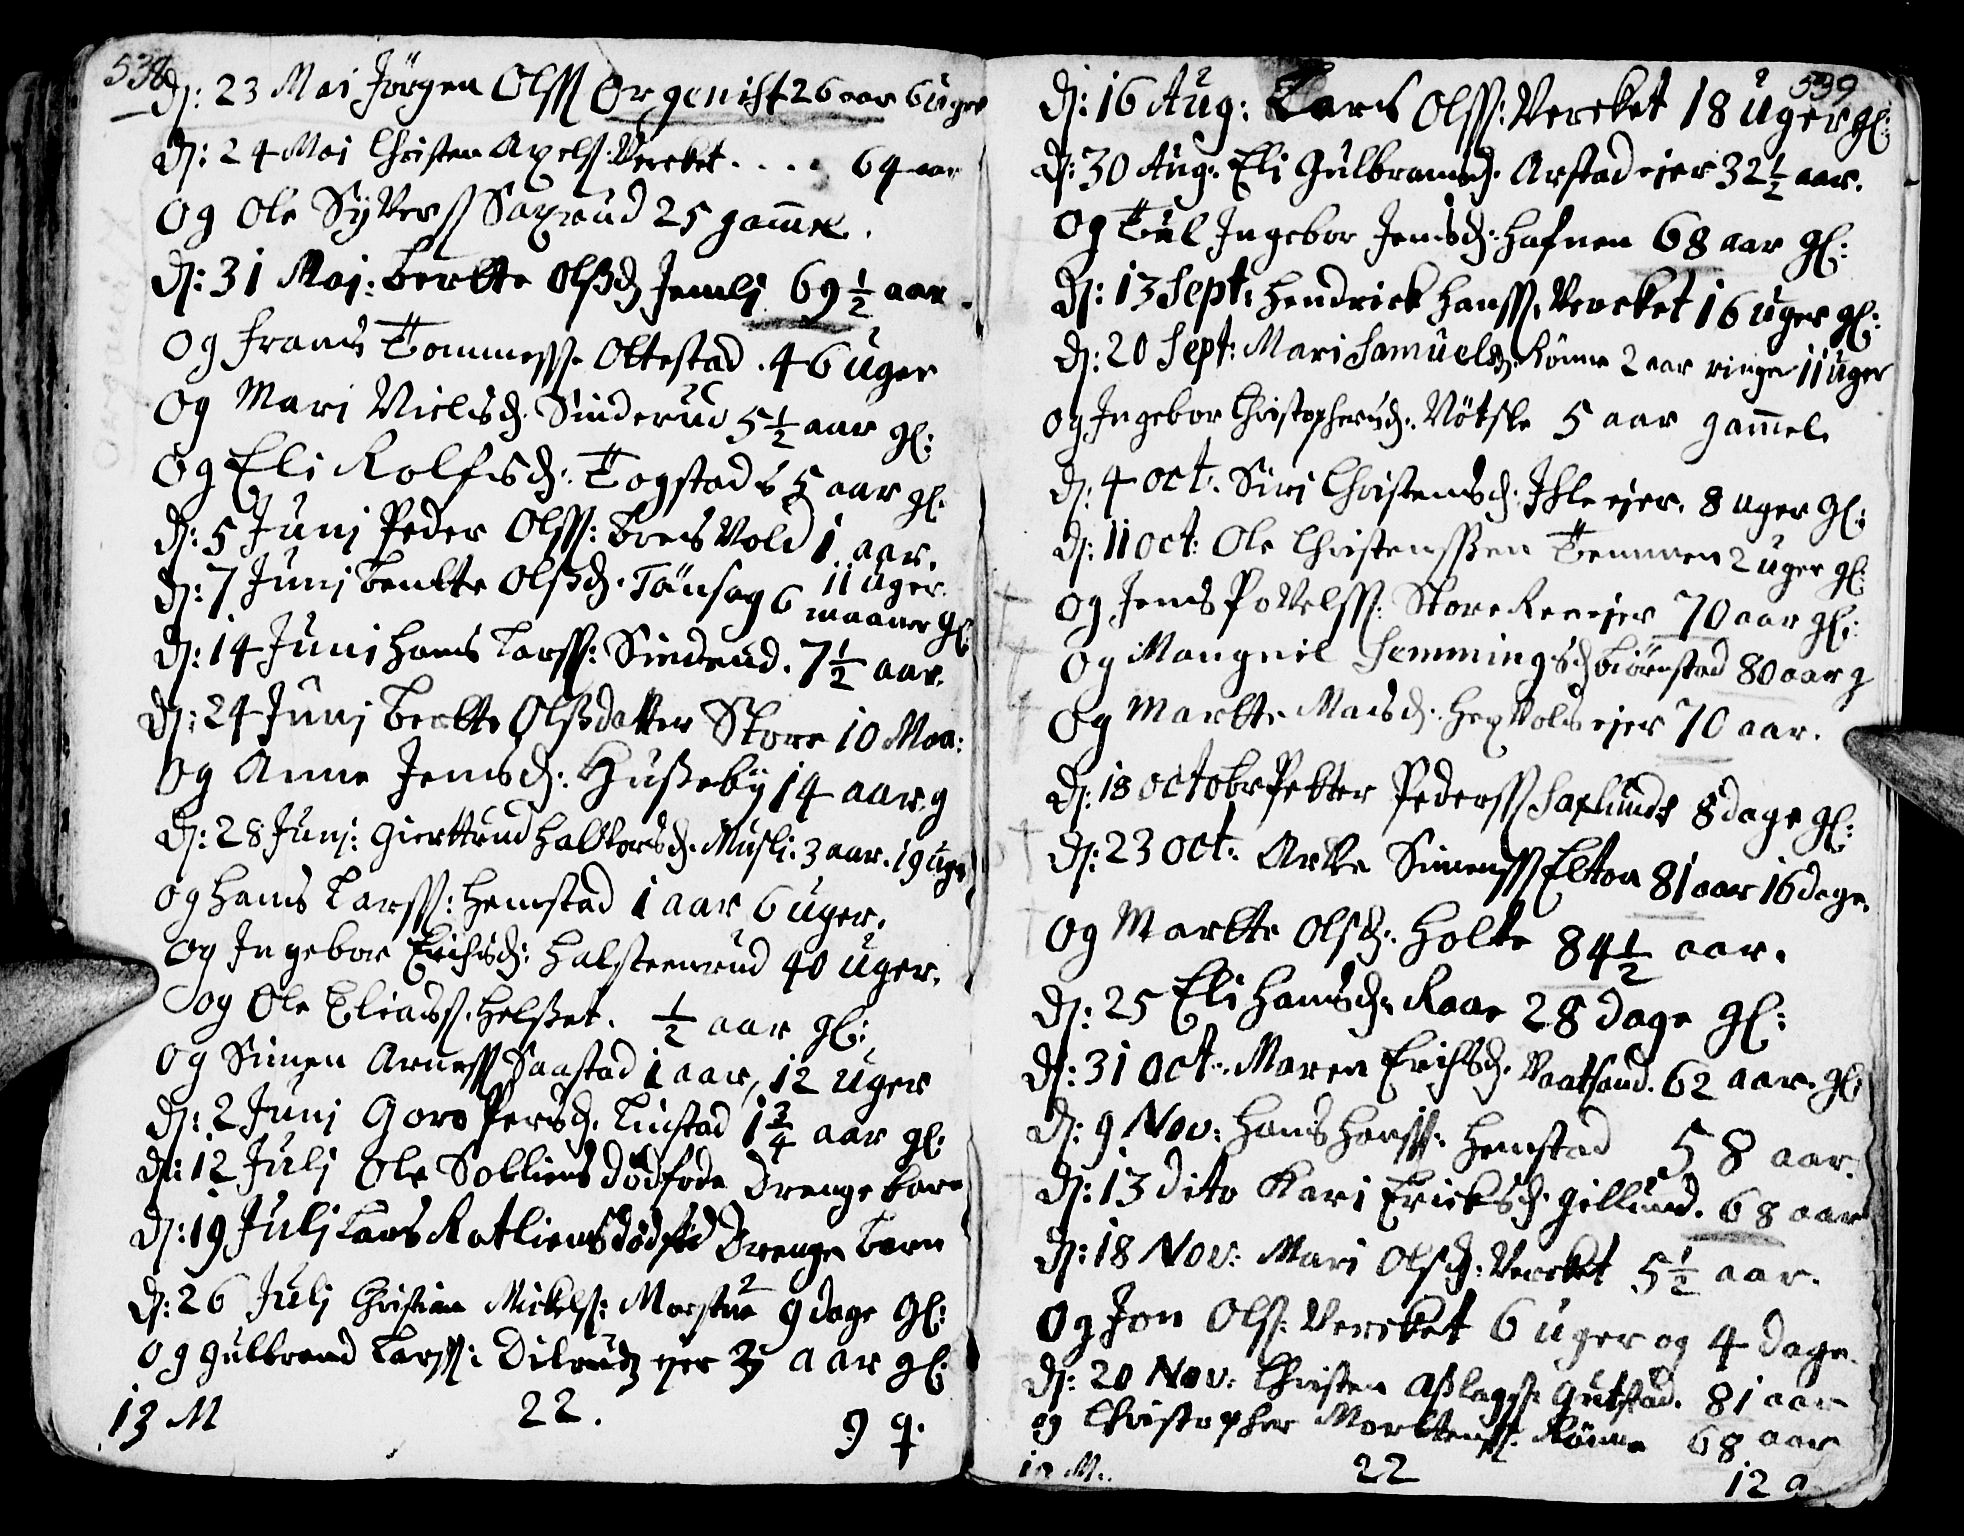 538
D: 23 Maj Jörgen Olss Organist 26 aar 6 Uger
D: 24 Maj Christen Axels: Vercket .... 64 aar
Og Ole Syvers Saxrud 25 gammel.
D: 31 Maj: Bertte Olsd Jemlj 69 1/2 aar
Og Frans Tommess. Oltestad. 46 Uger
Og Mari Nielsd. Sinderud 5 1/2 aar gl:
Og Eli Rolfsd: Togstad 5 aar gl:
D: 5 Junj Peder Olss: Vold 1 aar.
11 Uger.
D: 7 Junj Bertte Olsd. Tönsag 6 maaner gl:
D: 14 Junj Hans Larss: Sinderud. 7 1/2 aar.
D: 24 Junj Bertte Olsdatter Store 10 Maa:
Og Anne Jensd: Husseby 14 aar g
D: 28 Junj: Giertrud Halvorsd. Musli. 3 aar. 19 Uge
Og Hans Larss: Hemstad 1 aar 6 Uger.
Og Ingebor Erichsd: Halsteenrud 40 Uger.
Og Ole Eliass. Helset. 1/2 aar gl:
Og Simen Arness Saastad 1 aar, 12 Uger
D: 2 Junj Goro Persd. Linstad 1 3/4 aar gl:
D: 12 Julj Ole Solliens dödfode Drenge barn
D: 19 Julj Lars Rotliens dödföd Drenge Barn
D: 26 Julj Christian Mickels: Morstue 9 dage gl:
Og Gulbrand Larss: ejer aar gl:
13 M 22. 9 q.
539
D: 16 Aug: Lars Olss: Vercket 18 Uger gl:
D: 30 Aug. Eli Gulbransd. Arstad ejer 32 1/2 aar.
Og Ingebor Jensd: Hafnen 68 aar gl:
D: 13 Sept: Hendrick Hanss. Vercket 16 Uger gl:
D: 20 Sept: Mari Samuelsd. Rönne 2 aar ringe 11 Uger
og Ingebor Christophersd. Nötsle 5 aar gammel.
D: 4 oct. Siri Christensd. Ihle ejer. 8 Uger gl:
D: 11 oct: Ole Christenssen 2 Uger gl:
Og Jens Povelss: Store Ree ejer 70 aar gl:
Og Mangnil Hemmingsd Biörnstad 80 aar g
Og Martte Madsd. ejer 70 aar.
D: 18 octobr Petter Pederss Saxlund 8 dage gl:
D: 23 oct: Arve Simenss Elton 81 aar 16 dage.
Og Martte Olsd. Holte 84 1/2 aar.
D: 25 Eli Hansd. Raae 28 dage gl:
D: 31 oct. Maren Erichsd. Vaatsand. 62 aar. gl:
D: 9 Nov: Hans Hanss: Hemstad 58 aar.
D: 13 dito Kari Ericksd. Gillund. 68 aar
D: 18 Nov: Mari Olsd: Vercket 5 1/2 aar.
Og Jon Ols: Vercket 6 Uger og 4 dage.
D: 20 Nov: Christen Aslags. Gutstad. 81 aar
og Christopher Morttens: Rönne 68 aar
10 M. 22 12 q